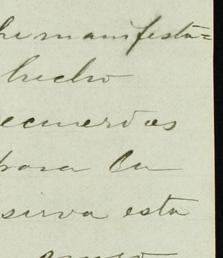 manifesta=
hecho
recuerdos
para la
sirva esta